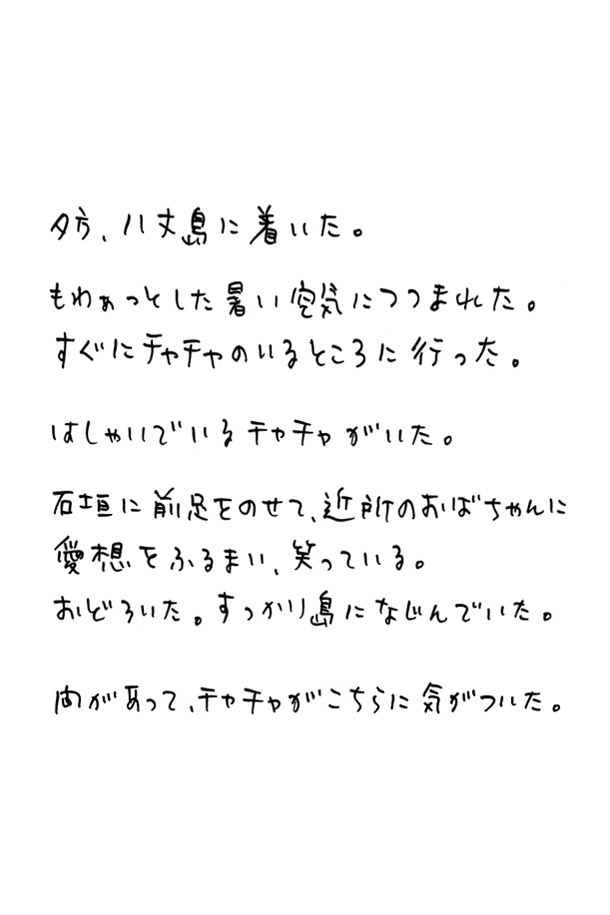 夕方、八丈島に着いた。
もわぁっとした暑い空気につつまれた。
すぐにチャチャのいるところに行った。
はしゃいでいるチャチャがいた。
石垣に前足をのせて、近所のおばちゃんに
愛想をふるまい、笑っている。
おどろいた。すっかり島になじんでいた。
間があって、チャチャがこちらに気がついた。